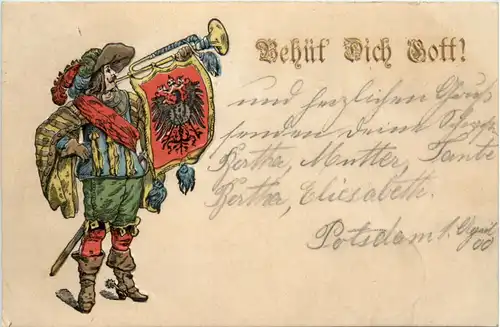 Behüt' Dich Gott!
und herzlichen Gruß
senden deine
Hertha, Mutter, Tante
Hertha, Eliesabeth.
Potsdam 1. April
00